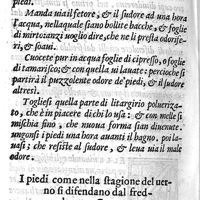 piedi.
Manda uia il fetore, & il sudore ad una hora
l'acqua, nellaquale siano bollite bacche, & foglie
di mirto: anzi uoglio dire, che ne li presta odorife-
ri, & soaui.
Cuocete pur in acqua foglie di cipresso, o foglie
di tamarisco; & con quella ui lauate: percioche si
partirà il puzzolente odore de' piedi, & d'altre
altresi.
Togliesi quella parte di litargirio poluerizza-
to, che è in piacere di chi lo usa: & con mele si
mischia sino, che nuoua forma sian diuenute.
ungonsi i piedi una hora auanti il bagno, poi la-
uasi: che resiste al sudore, & leua uia il male
odore.
I piedi come nella stagione del uer-
no si difendano dal fred-